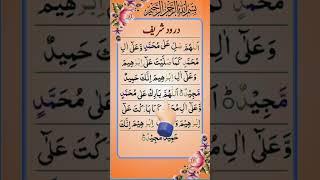 بِسْمِ اللهِ الرَّحْمٰنِ الرَّحِيْمِ
درود شریف
اَللّٰهُمَّ صَلِّ عَلٰى مُحَمَّدٍ وَّعَلٰٓى اٰلِ
مُحَمَّدٍ كَمَا صَلَّيْتَ عَلٰٓى اِبْرٰهِيْمَ
وَعَلٰٓى اٰلِ اِبْرٰهِيْمَ اِنَّكَ حَمِيْدٌ
مَّجِيْدٌ اَللّٰهُمَّ بَارِكْ عَلٰى مُحَمَّدٍ
وَّعَلٰٓى اٰلِ مُحَمَّدٍ كَمَا بَارَكْتَ عَلٰٓى
اِبْرٰهِيْمَ وَعَلٰٓى اٰلِ اِبْرٰهِيْمَ اِنَّكَ
حَمِيْدٌ مَّجِيْدٌ